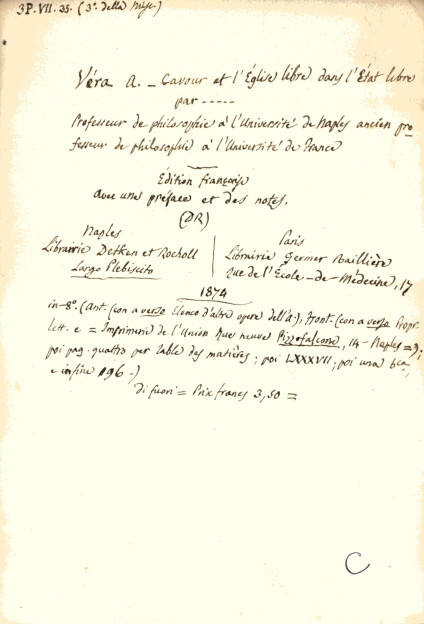 3P. VII. 35. (3ª della Misc.)
Véra A. _ Cavour et l'Église libre dans l'État libre
par -----
Professeur de philosophie à l'Université de Naples ancien pro-
fesseur de philosophie à l'Université de France
Édition française
avec une préface et des notes.
(DR)
Naples
Librairie Detken et Rocholl
Largo Plebiscito
Paris
Librairie Germer Baillière
rue de l'École-de-Médecine, 17
1874
in-8º. (Ant. (con a verso Elenco d'altre opere dell'a.), Front. (con a verso Propr.
lett. e = Imprimerie de l'Union Rue neuve Pizzofalcone, 14 - Naples =);
poi pag. quattro per Table des matières; poi LXXXVII; poi una bca,
e infine 196.)
di fuori = Prix francs 3,50 =
C